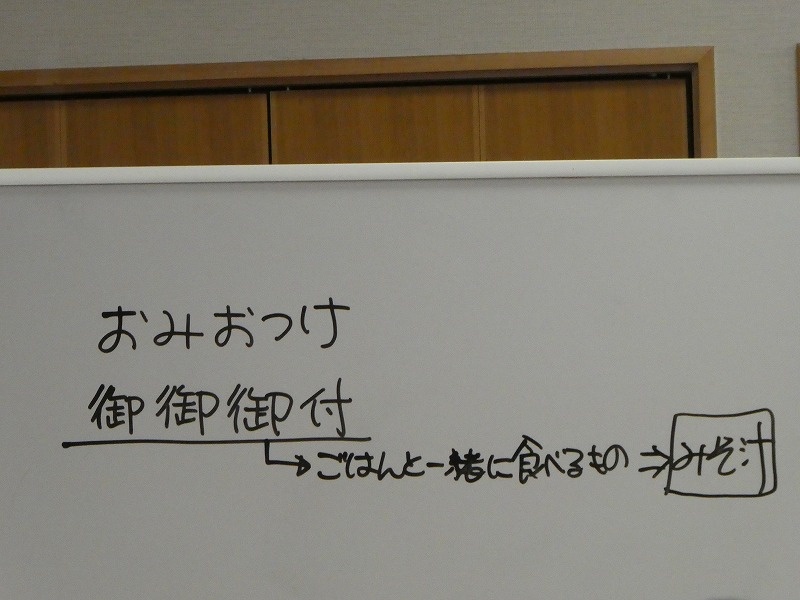 おみおつけ
御御御付
ごはんと一緒に食べるもの⇒みそ汁